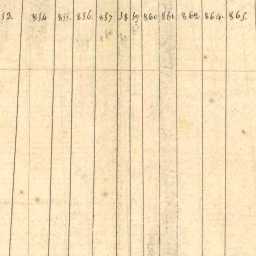 52. 854 855. 856. 857 58 59 860 861 862 864. 865.